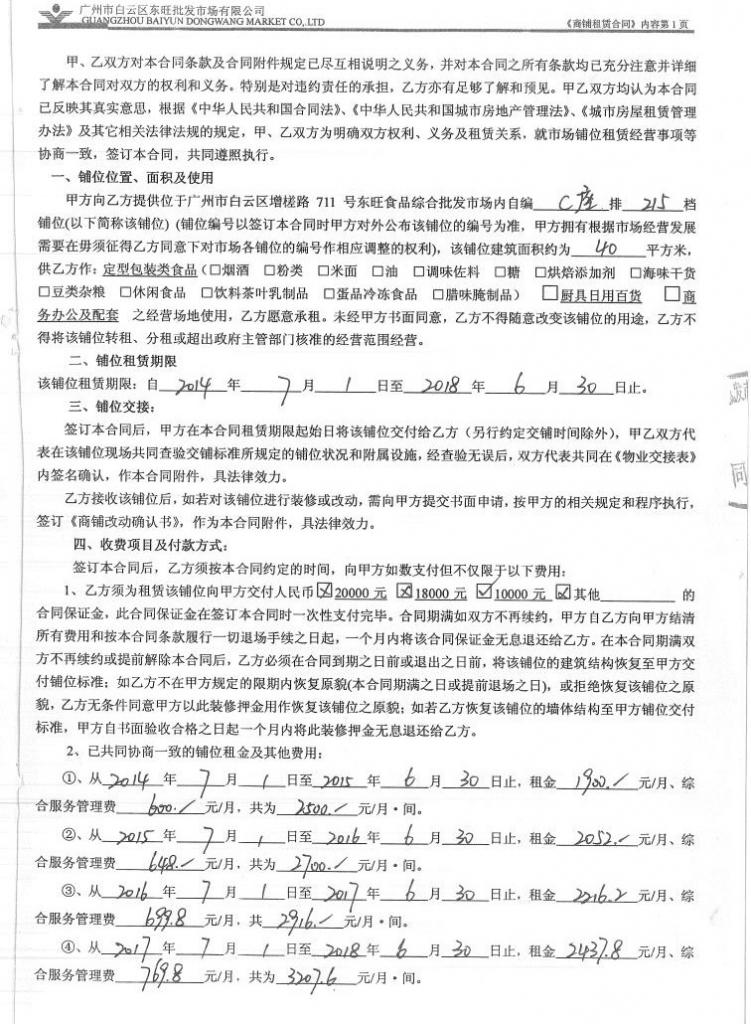 广州市白云区东旺批发市场有限公司
GUANGZHOU BAIYUN DONGWANG MARKET CO,.LTD
《商铺租赁合同》内容第 1 页
甲、乙双方对本合同条款及合同附件规定已尽互相说明之义务，并对本合同之所有条款均已充分注意并详细
了解本合同对双方的权利和义务。特别是对违约责任的承担，乙方亦有足够了解和预见。甲乙双方均认为本合同
已反映其真实意思，根据《中华人民共和国合同法》、《中华人民共和国城市房地产管理法》、《城市房屋租赁管理
办法》及其它相关法律法规的规定，甲、乙双方为明确双方权利、义务及租赁关系，就市场铺位租赁经营事项等
协商一致，签订本合同，共同遵照执行。
一、铺位位置、面积及使用
甲方向乙方提供位于广州市白云区增槎路 711 号东旺食品综合批发市场内自编 C座 排 215 档
铺位(以下简称该铺位) (铺位编号以签订本合同时甲方对外公布该铺位的编号为准，甲方拥有根据市场经营发展
需要在毋须征得乙方同意下对市场各铺位的编号作相应调整的权利)，该铺位建筑面积约为 40 平方米，
供乙方作：定型包装类食品（□烟酒 □粉类 □米面 □油 □调味佐料 □糖 □烘焙添加剂 □海味干货
□豆类杂粮 □休闲食品 □饮料茶叶乳制品 □蛋品冷冻食品 □腊味腌制品） □厨具日用百货 □商
务办公及配套 之经营场地使用，乙方愿意承租。未经甲方书面同意，乙方不得随意改变该铺位的用途，乙方不
得将该铺位转租、分租或超出政府主管部门核准的经营范围经营。
二、铺位租赁期限
该铺位租赁期限：自 2014 年 7 月 1 日至 2018 年 6 月 30 日止。
三、铺位交接：
签订本合同后，甲方在本合同租赁期限起始日将该铺位交付给乙方（另行约定交铺时间除外），甲乙双方代
表在该铺位现场共同查验交铺标准所规定的铺位状况和附属设施，经查验无误后，双方代表共同在《物业交接表》
内签名确认，作本合同附件，具法律效力。
乙方接收该铺位后，如若对该铺位进行装修或改动，需向甲方提交书面申请，按甲方的相关规定和程序执行，
签订《商铺改动确认书》，作为本合同附件，具法律效力。
同
四、收费项目及付款方式：
签订本合同后，乙方须按本合同约定的时间，向甲方如数支付但不仅限于以下费用：
1、乙方须为租赁该铺位向甲方交付人民币☒20000 元 ☒18000 元 ☑10000 元 ☒其他 的
合同保证金，此合同保证金在签订本合同时一次性支付完毕。合同期满如双方不再续约，甲方自乙方向甲方结清
所有费用和按本合同条款履行一切退场手续之日起，一个月内将该合同保证金无息退还给乙方。在本合同期满双
方不再续约或提前解除本合同后，乙方必须在合同到期之日前或退出之日前，将该铺位的建筑结构恢复至甲方交
付铺位标准；如乙方不在甲方规定的限期内恢复原貌(本合同期满之日或提前退场之日)，或拒绝恢复该铺位之原
貌，乙方无条件同意甲方以此装修押金用作恢复该铺位之原貌；如若乙方恢复该铺位的墙体结构至甲方铺位交付
标准，甲方自书面验收合格之日起一个月内将此装修押金无息退还给乙方。
2、已共同协商一致的铺位租金及其他费用：
①、从 2014 年 7 月 1 日至 2015 年 6 月 30 日止，租金 1900.╱ 元/月、综
合服务管理费 600.╱ 元/月，共为 2500.╱ 元/月·间。
②、从 2015 年 7 月 1 日至 2016 年 6 月 30 日止，租金 2052.╱ 元/月、综
合服务管理费 648.╱ 元/月，共为 2700.╱ 元/月·间。
③、从 2016 年 7 月 1 日至 2017 年 6 月 30 日止，租金 2216.2 元/月、综
合服务管理费 699.8 元/月，共 2916.╱ 元/月·间。
④、从 2017 年 7 月 1 日至 2018 年 6 月 30 日止，租金 2437.8 元/月、综
合服务管理费 769.8 元/月，共为 3207.6 元/月·间。